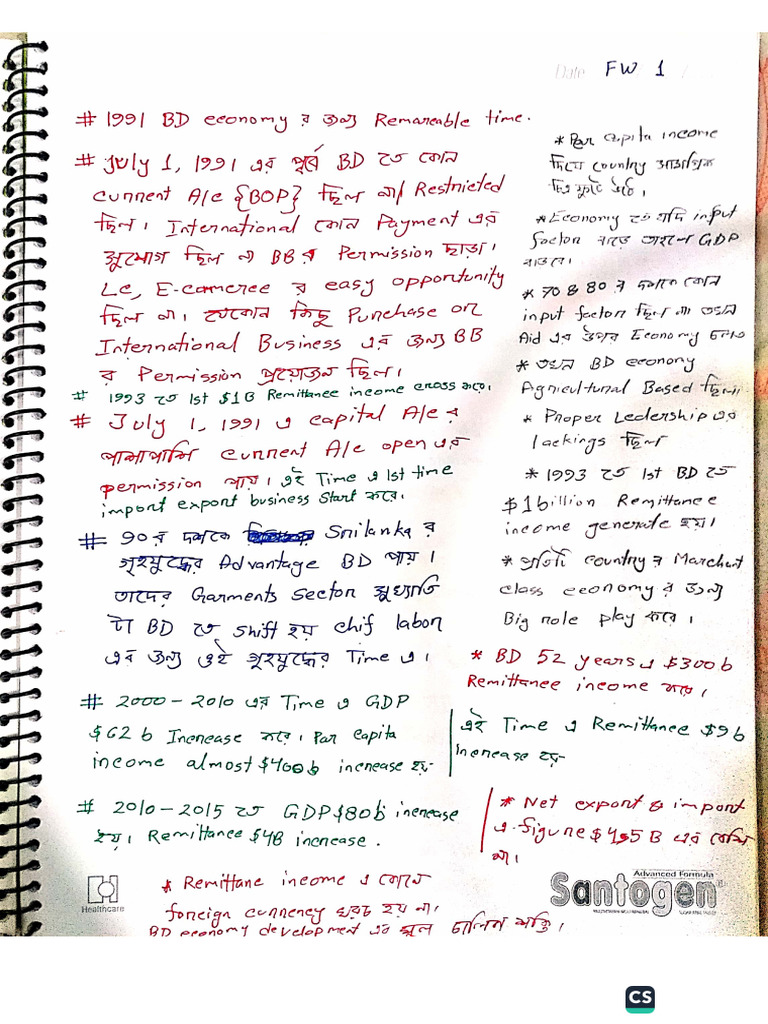 Date FW 1
# 1991 BD economy র জন্য Remareable time.
# July 1, 1991 এর পূর্বে BD তে কোন
current A/c {BOP} ছিল না/ Restricted
ছিল। International কোন Payment এর
সুযোগ ছিল না BB র Permission ছাড়া।
Lc, E-comeree র easy opportunity
ছিল না। যেকোন কিছু Purchase or
International Business এর জন্য BB
র Permission প্রয়োজন ছিল।
# 1993 তে 1st $1B Remittance income cross করে।
# July 1, 1991 এ capital A/c র
পাশাপাশি current A/c open এর
permission পায়। এই Time এ 1st time
import export business start করে।
# 90র দশকে Srilanka র
গৃহযুদ্ধের Advantage BD পায়।
তাদের Garments sector সুখ্যাতি
টা BD তে shift হয় chif labor
এর জন্য ওই গৃহযুদ্ধের Time এ।
# 2000-2010 এর Time এ GDP
$62 b Increase করে। Par capita
income almost $400b increase হয়
# 2010-2015 তে GDP $80b increase
হয়। Remittance $4B increase.
* Remittane income এ কোনো
foreign currency খরচ হয় না।
BD economy development এর মূল চালিন শক্তি।
* Par capita income
দিয়ে country
ফুটে উঠে।
* Economy তে যদি input
factor বাড়ে তাহলে GDP
বাড়বে।
* 70 & 80 র দশকে কোন
input factor ছিল না তখন
Aid এর উপর Economy চলত
* তখন BD economy
Agricultural Based ছিল।
* Proper Ledership এর
lackings ছিল
* 1993 তে 1st BD তে
$1billion Remittance
income generate হয়।
* প্রতিটি country র Marchent
class economy র জন্য
Big role play করে।
* BD 52 years এ $300b
Remittance income করে।
এই Time এ Remittance $9b
increase হয়
* Net export & import
এ figure $ 4.5 B এর বেশি
না।
Healthcare
Advanced Formula
Santogen